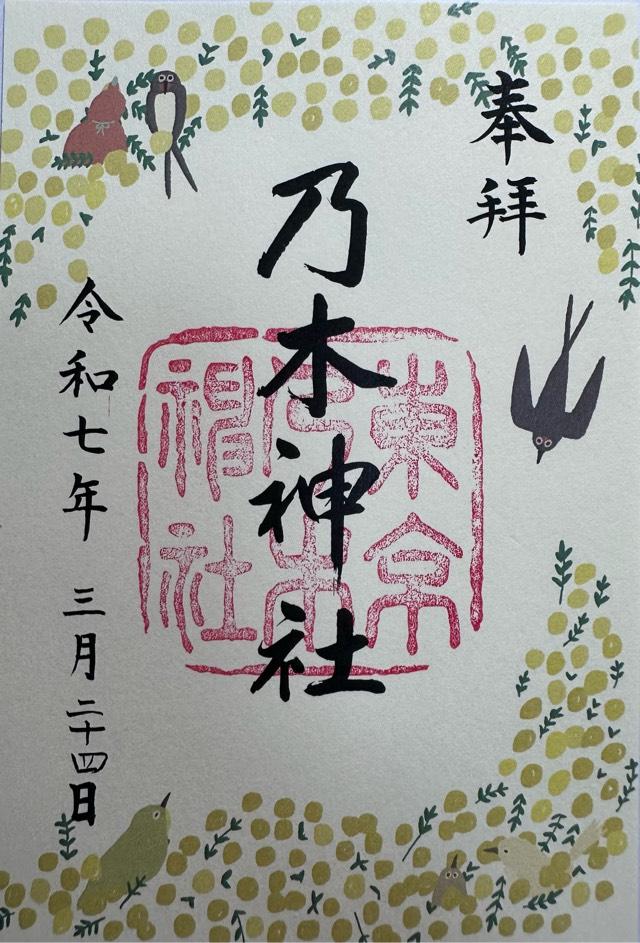 奉拝
乃木神社
東京
乃木
神社
令和七年 三月二十四日